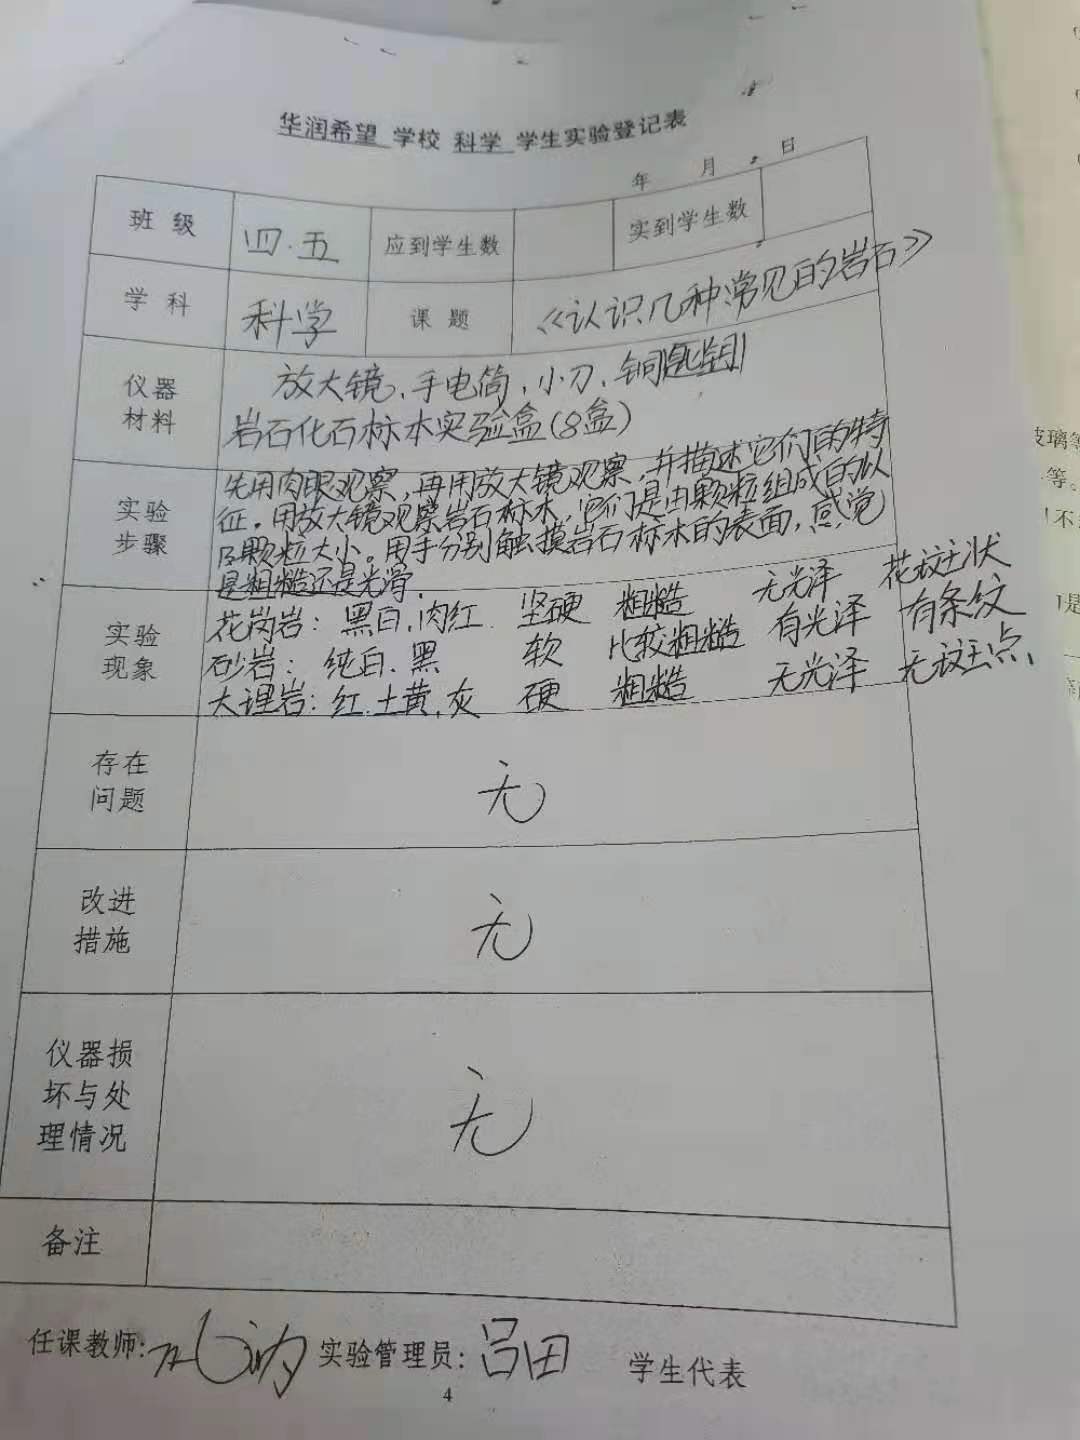 华润希望 学校 科学 学生实验登记表
年 月 日
班 级 四.五 应到学生数 实到学生数
学 科 科学 课 题 《认识几种常见的岩石》
仪器材料 放大镜、手电筒、小刀、铜
岩石化石标本实验盒(8盒)
实验步骤 先用肉眼观察,再用放大镜观察,并描述它们的特
征。用放大镜观察岩石标本,它们是由颗粒组成的以
及颗粒大小。用手分别触摸岩石标本的表面,感觉
是粗糙还是光滑.
实验现象 花岗岩: 黑白.肉红. 坚硬 粗糙 无光泽 花斑状
砂岩: 纯白.黑 软 比较粗糙 有光泽 有条纹
大理岩: 红.土黄.灰 硬 粗糙 无光泽 无斑点.
存在问题 无
改进措施 无
仪器损坏与处理情况 无
备注
任课教师: 实验管理员: 吕田 学生代表
4
玻璃
等。
不
是